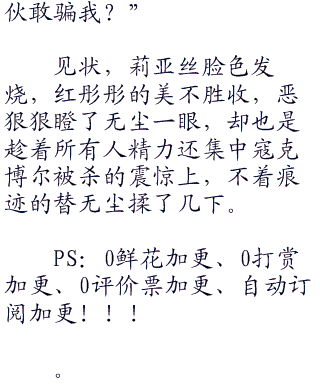 伙敢骗我？”
见状，莉亚丝脸色发
烧，红彤彤的美不胜收，恶
狠狠瞪了无尘一眼，却也是
趁着所有人精力还集中寇克
博尔被杀的震惊上，不着痕
迹的替无尘揉了几下。
PS：0鲜花加更、0打赏
加更、0评价票加更、自动订
阅加更！！！
。